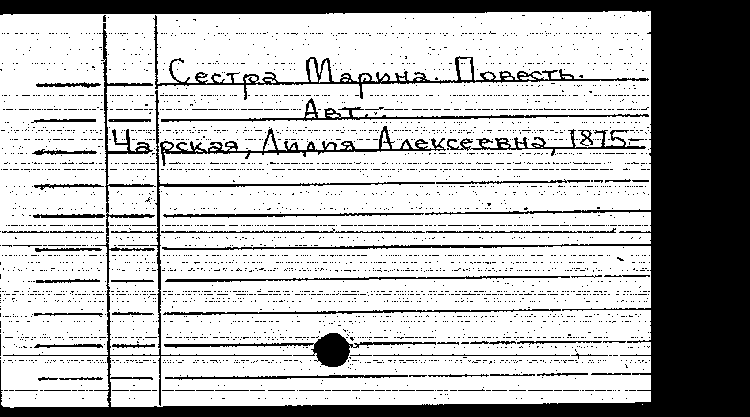 Сестра Марина. Повесть.
Авт.:
Чарская, Лидия Алексеевна, 1875-